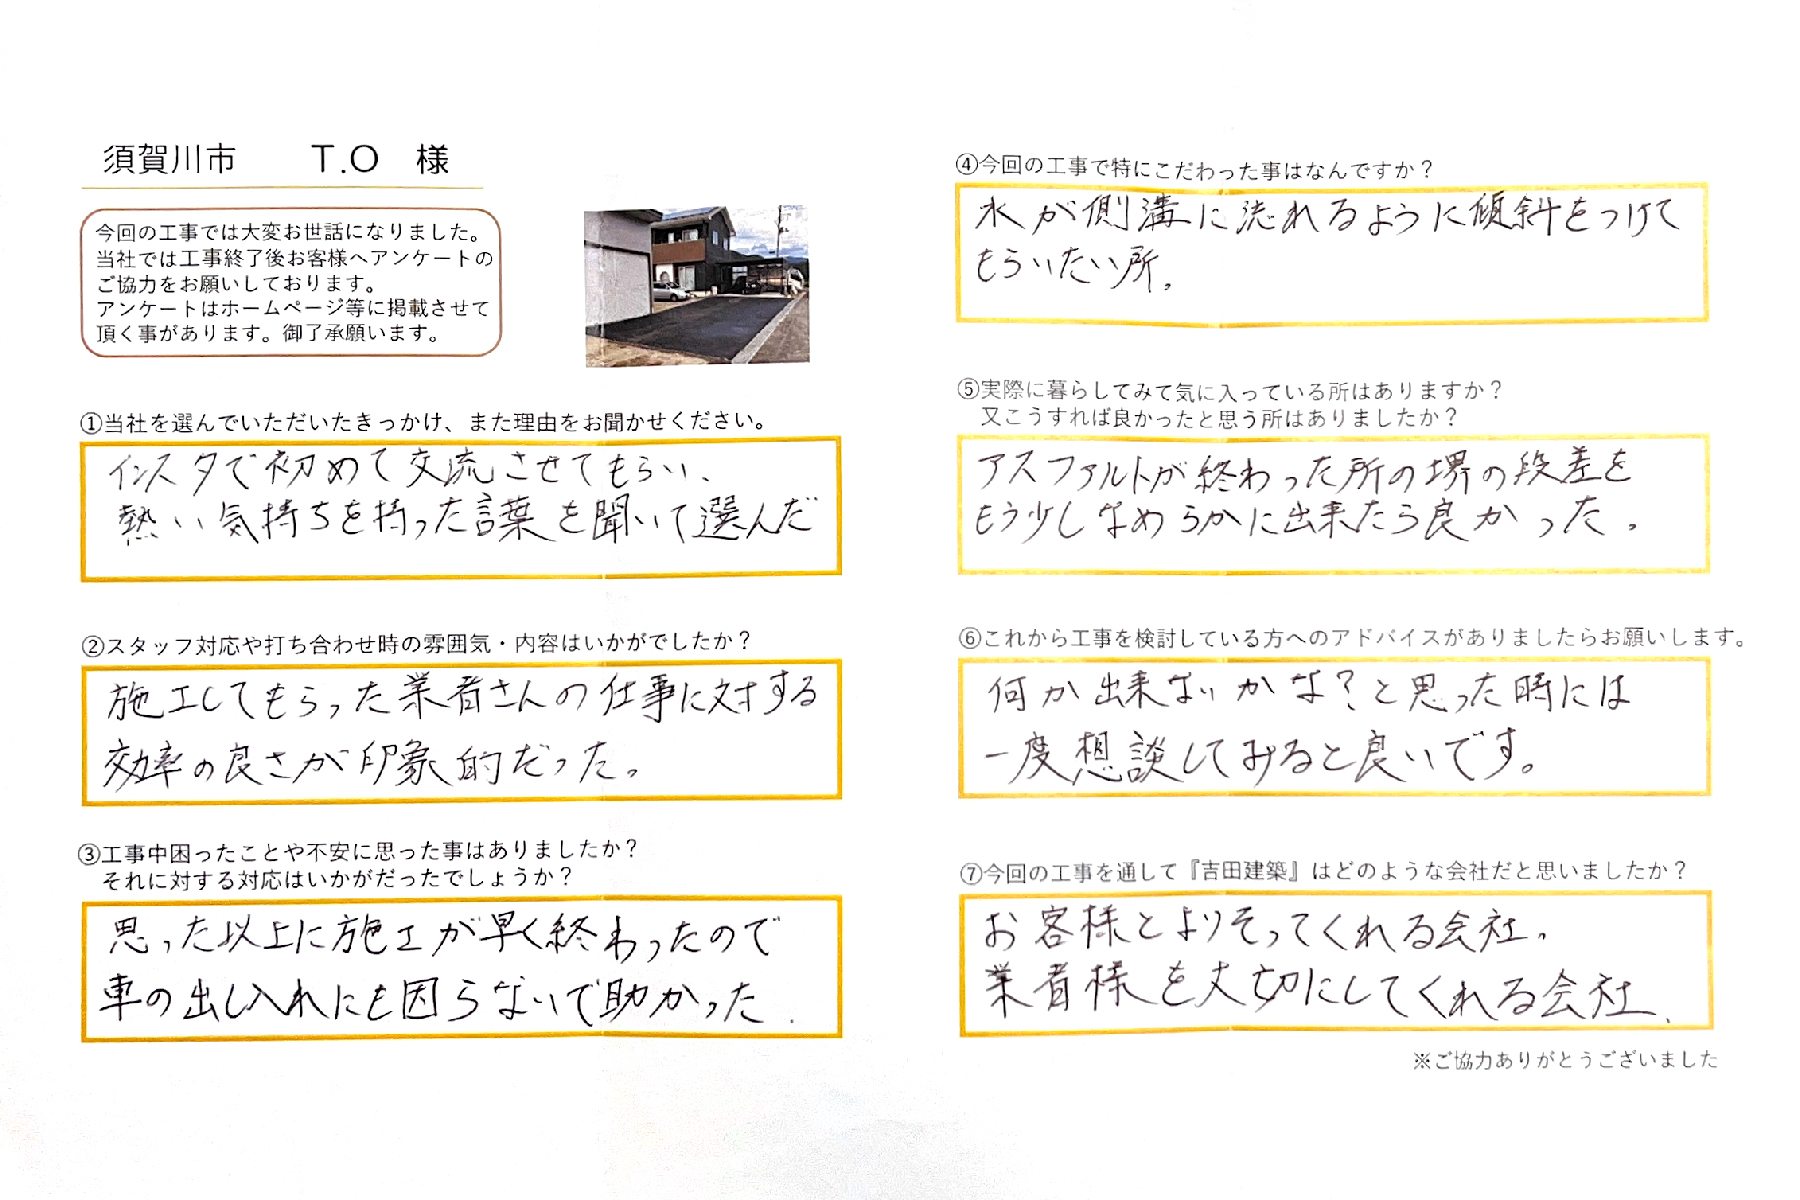 須賀川市 T.O 様
今回の工事では大変お世話になりました。
当社では工事終了後お客様へアンケートの
ご協力をお願いしております。
アンケートはホームページ等に掲載させて
頂く事があります。御了承願います。
①当社を選んでいただいたきっかけ、また理由をお聞かせください。
インスタで初めて交流させてもらい、
熱い気持ちを持った言葉を聞いて選んだ
②スタッフ対応や打ち合わせ時の雰囲気・内容はいかがでしたか？
施工してもらった業者さんの仕事に対する
効率の良さが印象的だった。
③工事中困ったことや不安に思った事はありましたか？
それに対する対応はいかがだったでしょうか？
思った以上に施工が早く終わったので
車の出し入れにも困らないで助かった.
④今回の工事で特にこだわった事はなんですか？
水が側溝に流れるように傾斜をつけて
もらいたい所。
⑤実際に暮らしてみて気に入っている所はありますか？
又こうすれば良かったと思う所はありましたか？
アスファルトが終わった所の堺の段差を
もう少しなめらかに出来たら良かった。
⑥これから工事を検討している方へのアドバイスがありましたらお願いします。
何か出来ないかな？と思った時には
一度想談してみると良いです。
⑦今回の工事を通して『吉田建築』はどのような会社だと思いましたか？
お客様とよりそってくれる会社。
業者様を大切にしてくれる会社.
※ご協力ありがとうございました